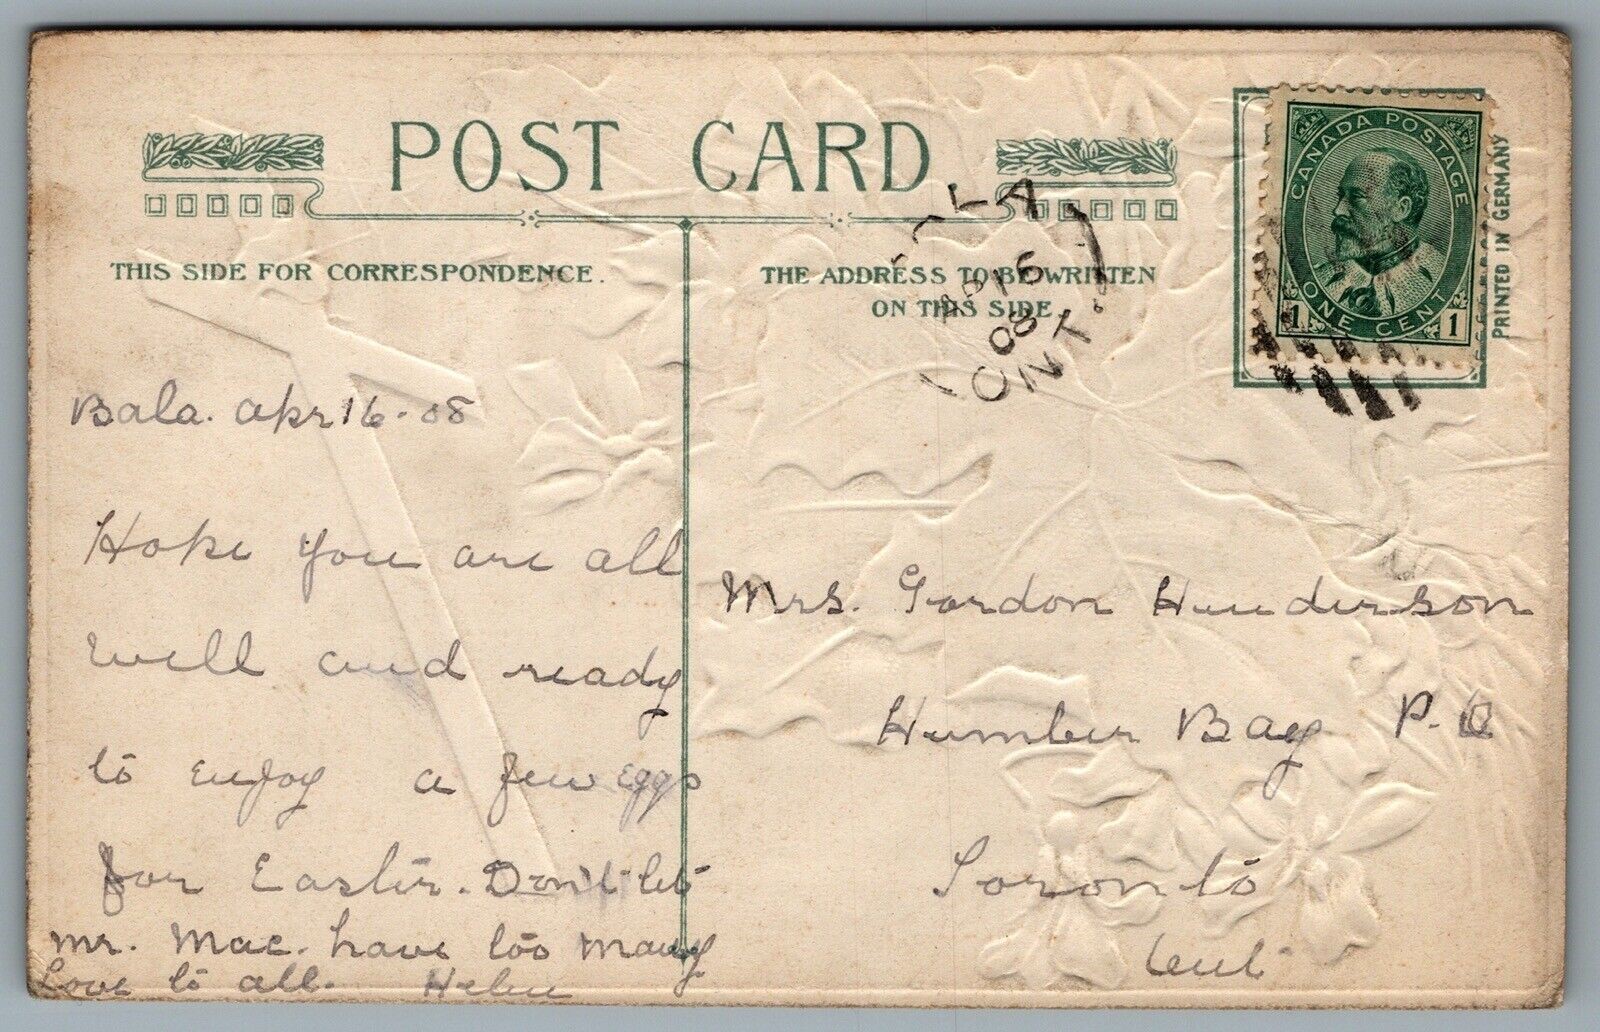 POST CARD
THIS SIDE FOR CORRESPONDENCE.
THE ADDRESS TO BE WRITTEN
ON THIS SIDE
CANADA POSTAGE
ONE CENT
1 1
PRINTED IN GERMANY
LA
AP 16
08
ONT.
Bala. Apr 16-08
Hope you are all
well and ready
to enjoy a few eggs
for Easter. Don't let
Mr. Mac. have too many
Love to all. Helen
Mrs. Gordon Henderson
Humber Bay P.O
Toronto
Ont.